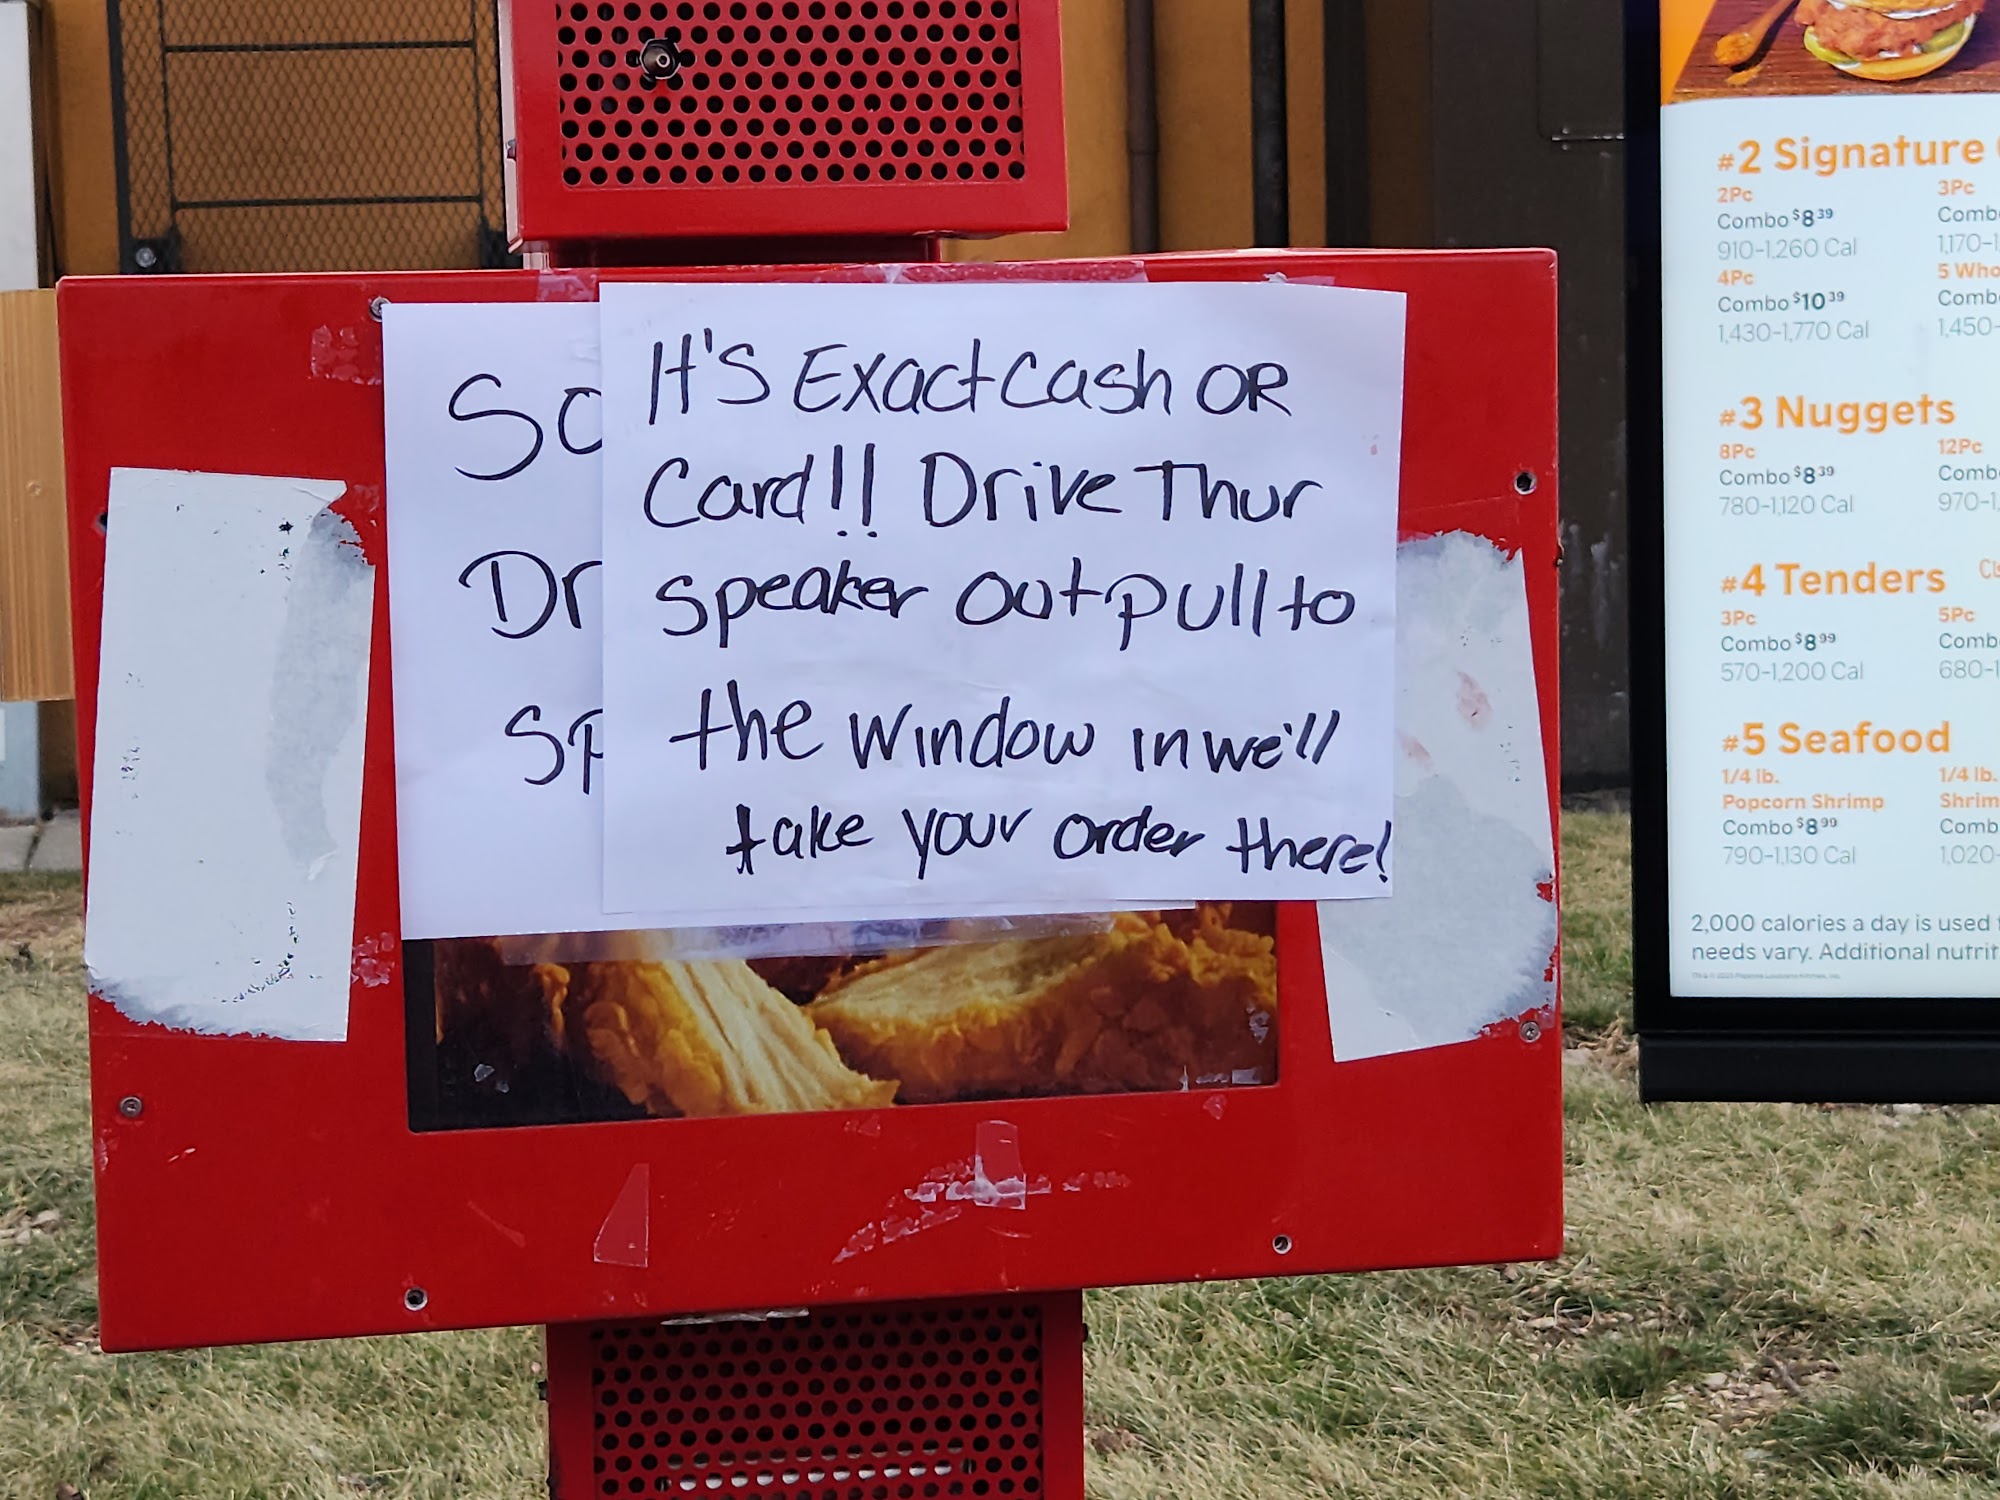 It's Exact cash OR
Card!! Drive Thur
speaker out pull to
the window in we'll
take your order there!
So
Dr
Sp
#2 Signature
2Pc
Combo $8 39
910-1,260 Cal
4Pc
Combo $10 39
1,430-1,770 Cal
3Pc
Comb
1,170-1
5 Who
Comb
1,450-
#3 Nuggets
8Pc
Combo $8 39
780-1,120 Cal
12Pc
Comb
970-1,
#4 Tenders
3Pc
Combo $8 99
570-1,200 Cal
5Pc
Comb
680-1
#5 Seafood
1/4 lb.
Popcorn Shrimp
Combo $8 99
790-1,130 Cal
1/4 lb.
Shrim
Comb
1,020-
2,000 calories a day is used
needs vary. Additional nutrit